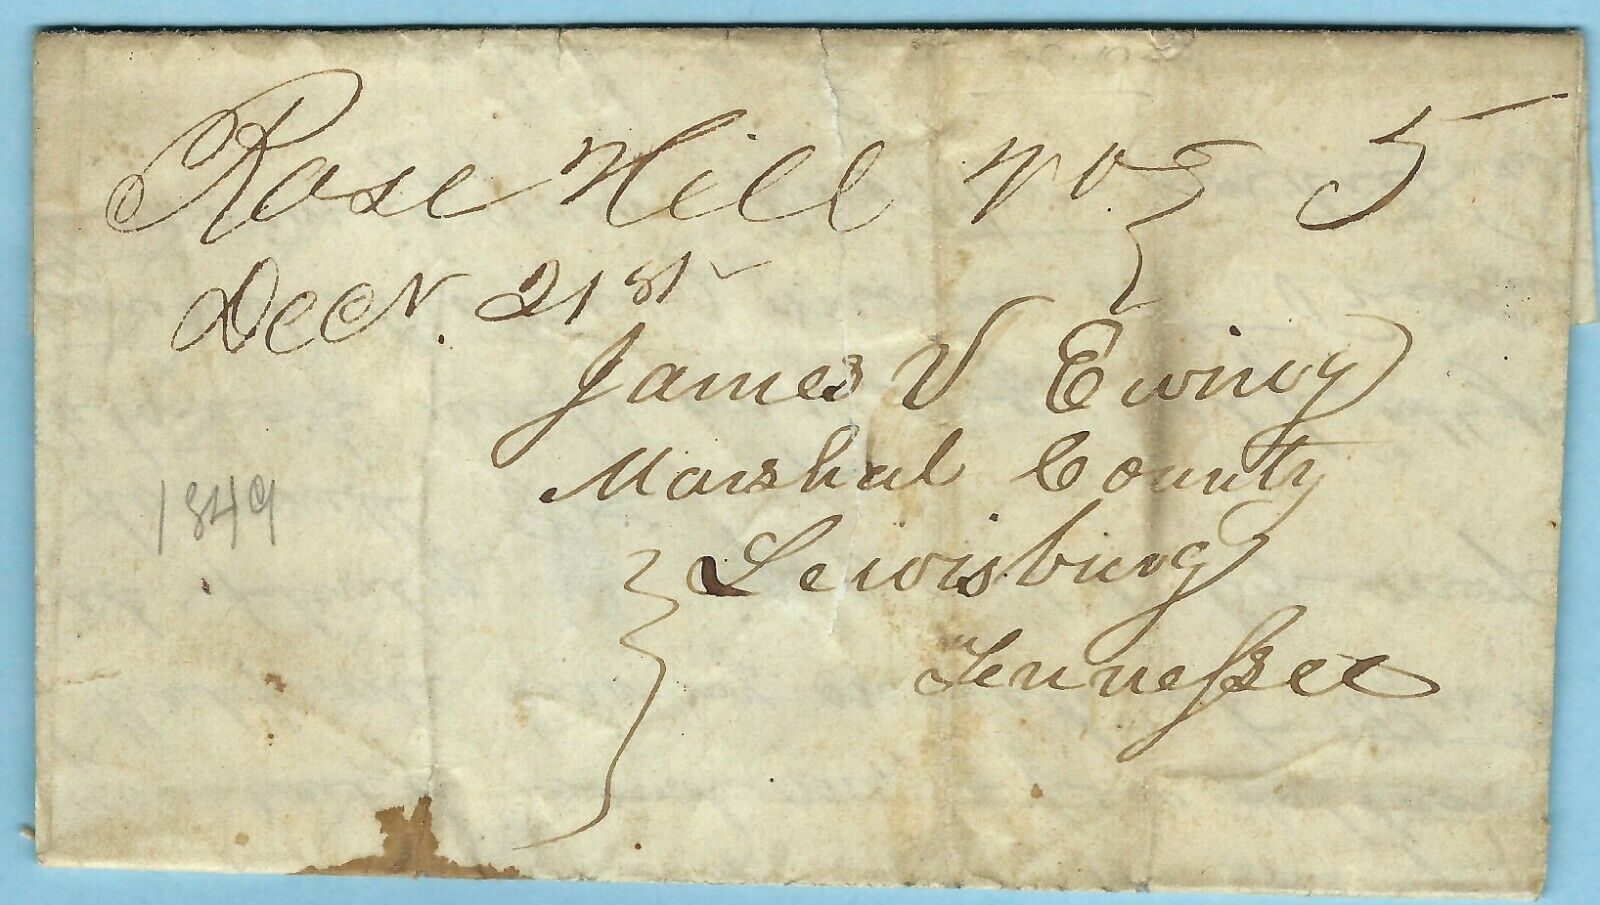 Rose Hill Va 5
Decr. 21st
James V Ewing
Marshal County
Lewisburg
Tennessee
1849